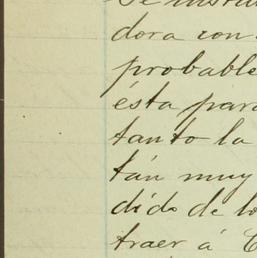 dora con
probable
ésta para
tan to la
tán muy
dido de lo
traer á